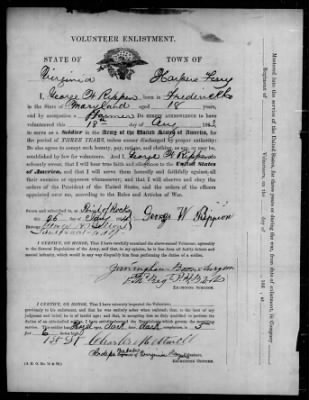 VOLUNTEER ENLISTMENT.
STATE OF TOWN OF
Virginia Harpers Ferry
I, George W Rippeon born in Frederick
in the State of Maryland aged 18 years,
and by occupation a Farmer Do HEREBY ACKNOWLEDGE to have
volunteered this 18th day of Aug 186
to serve as a Soldier in the Army of the United States of America, for
the period of THREE YEARS, unless sooner discharged by proper authority:
Do also agree to accept such bounty, pay, rations, and clothing, as are, or may be,
established by law for volunteers. And I, George W Rippeon do
solemnly swear, that I will bear true faith and allegiance to the United States
of America, and that I will serve them honestly and faithfully against all
their enemies or opposers whomsoever; and that I will observe and obey the
orders of the President of the United States, and the orders of the officers
appointed over me, according to the Rules and Articles of War.
Sworn and subscribed to, at Point of Rocks
this 26 day of
George W Rippeon
I CERTIFY, ON HONOR, That I have carefully examined the above named Volunteer, agreeably
to the General Regulations of the Army, and that, in my opinion, he is free from all bodily defects and mental
infirmity, which would in any way disqualify him from performing the duties of a soldier.
EXAMINING SURGEON.
I CERTIFY, ON HONOR, That I have minutely inspected the Volunteer,
previously to his enlistment, and that he was entirely sober when enlisted; that, to the best of my
judgment and belief, he is of lawful age; and that, in accepting him as duly qualified to perform the
duties of an able-bodied soldier, I have strictly observed the Regulations which govern the recruiting
service. This soldier has eyes, Dark hair, Dark complexion, is 5
feet 6 inches high.
1st
RECRUITING OFFICER.
Mustered into the service of the United States, for three years or during the war, from date of enlistment, in Company
Regiment of Volunteers, on the day of 186 , at